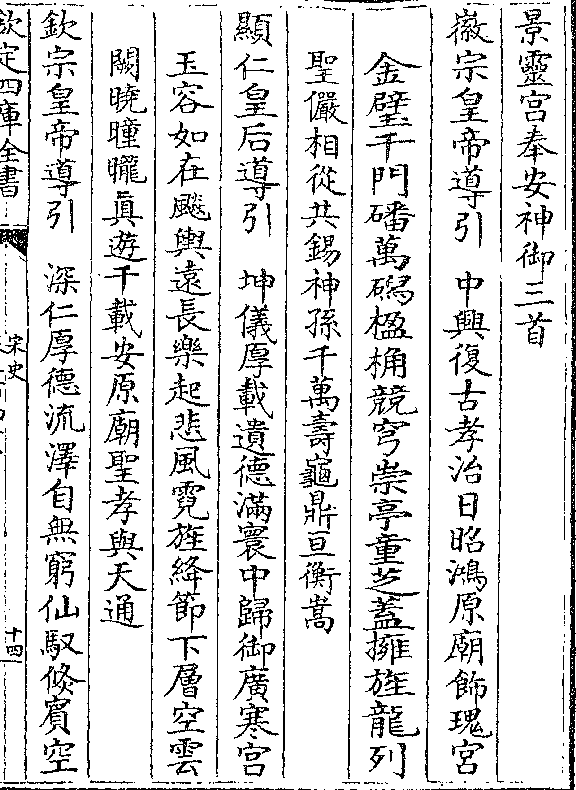 景靈宮奉安神御三首
徽宗皇帝導引　中興復古孝治日昭鴻原廟飾瑰宮
金壁千門磻萬碣楹桷競穹崇亭童芝蓋擁旌龍列
聖儼相從共錫神孫千萬壽龜鼎亘衡嵩
顯仁皇后導引　坤儀厚載遺德滿寰中歸御廣寒宮
玉容如在飈輿遠長樂起悲風霓旌絳節下層空雲
闕曉曈曨眞遊千載安原廟聖孝與天通
欽宗皇帝導引　深仁厚德流澤自無窮仙馭倐賓空
欽定四庫全書
宋史
十四